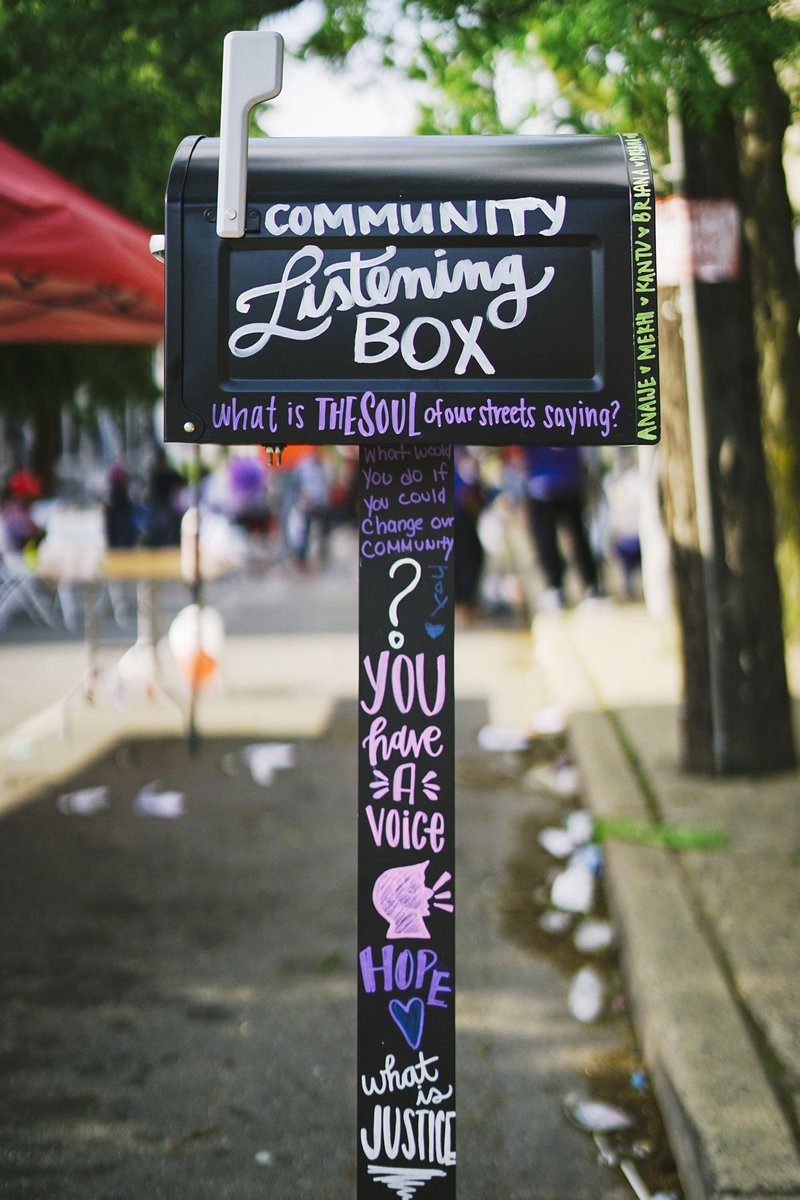 COMMUNITY
Listening
BOX
What is THE SOUL of our streets saying?
ANAIJE ♥ MERHI ♥ KANTU ♥ BRIANA ♥
What would
You do if
you could
change our
COMMUNITY
?
YOU
have
A
VOICE
HOPE
what
is
JUSTICE